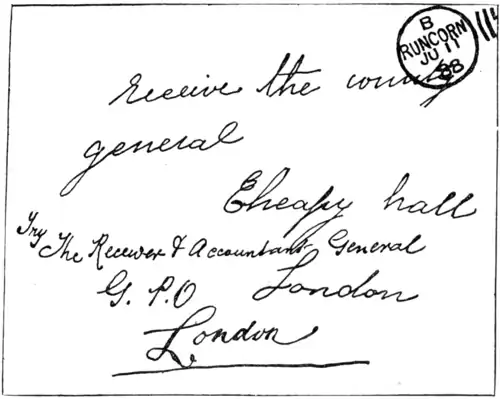 B
RUNCORN
JU 11
88
receive the county
general
Cheapy hall
Try The Receiver & Accountant General
G. P. O London
London